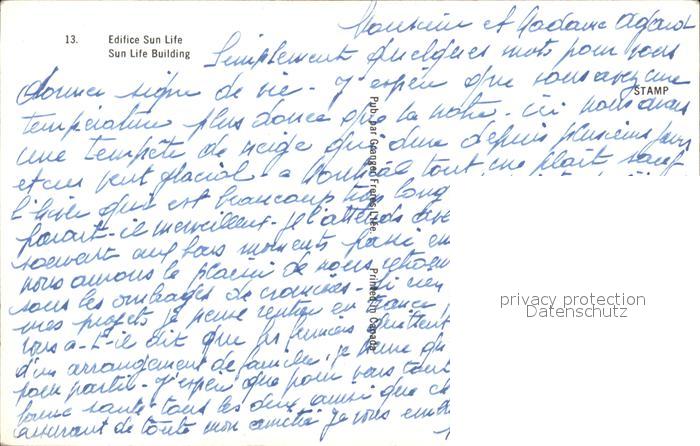 Monsieur et Madame Agard
13. Edifice Sun Life
Sun Life Building
Simplement quelques mots pour vous
donner signe de vie - J'espère que vous avez une
STAMP
température plus douce que la notre. ici nous avons
une tempête de neige qui dure depuis plusieurs jours
et un vent glacial - a Montréal tout me plaît sauf
l'hiver qui est beaucoup trop long
parait-il merveilleux - je l'attends avec
souvent aux bons moments passé en
nous aurons le plaisir de nous retrouver
sous les ombrages de
mes projets je pense rentrer en France
vous a-t-il dit que les
d'un arrangement de famille, je pense qu
pour partir - J'espère que pour vous tout
bonne santé tous les deux ainsi que
assurant de toute mon amitié je vous
Pub. par Granger Frères Ltée.
Printed in Canada
privacy protection
Datenschutz